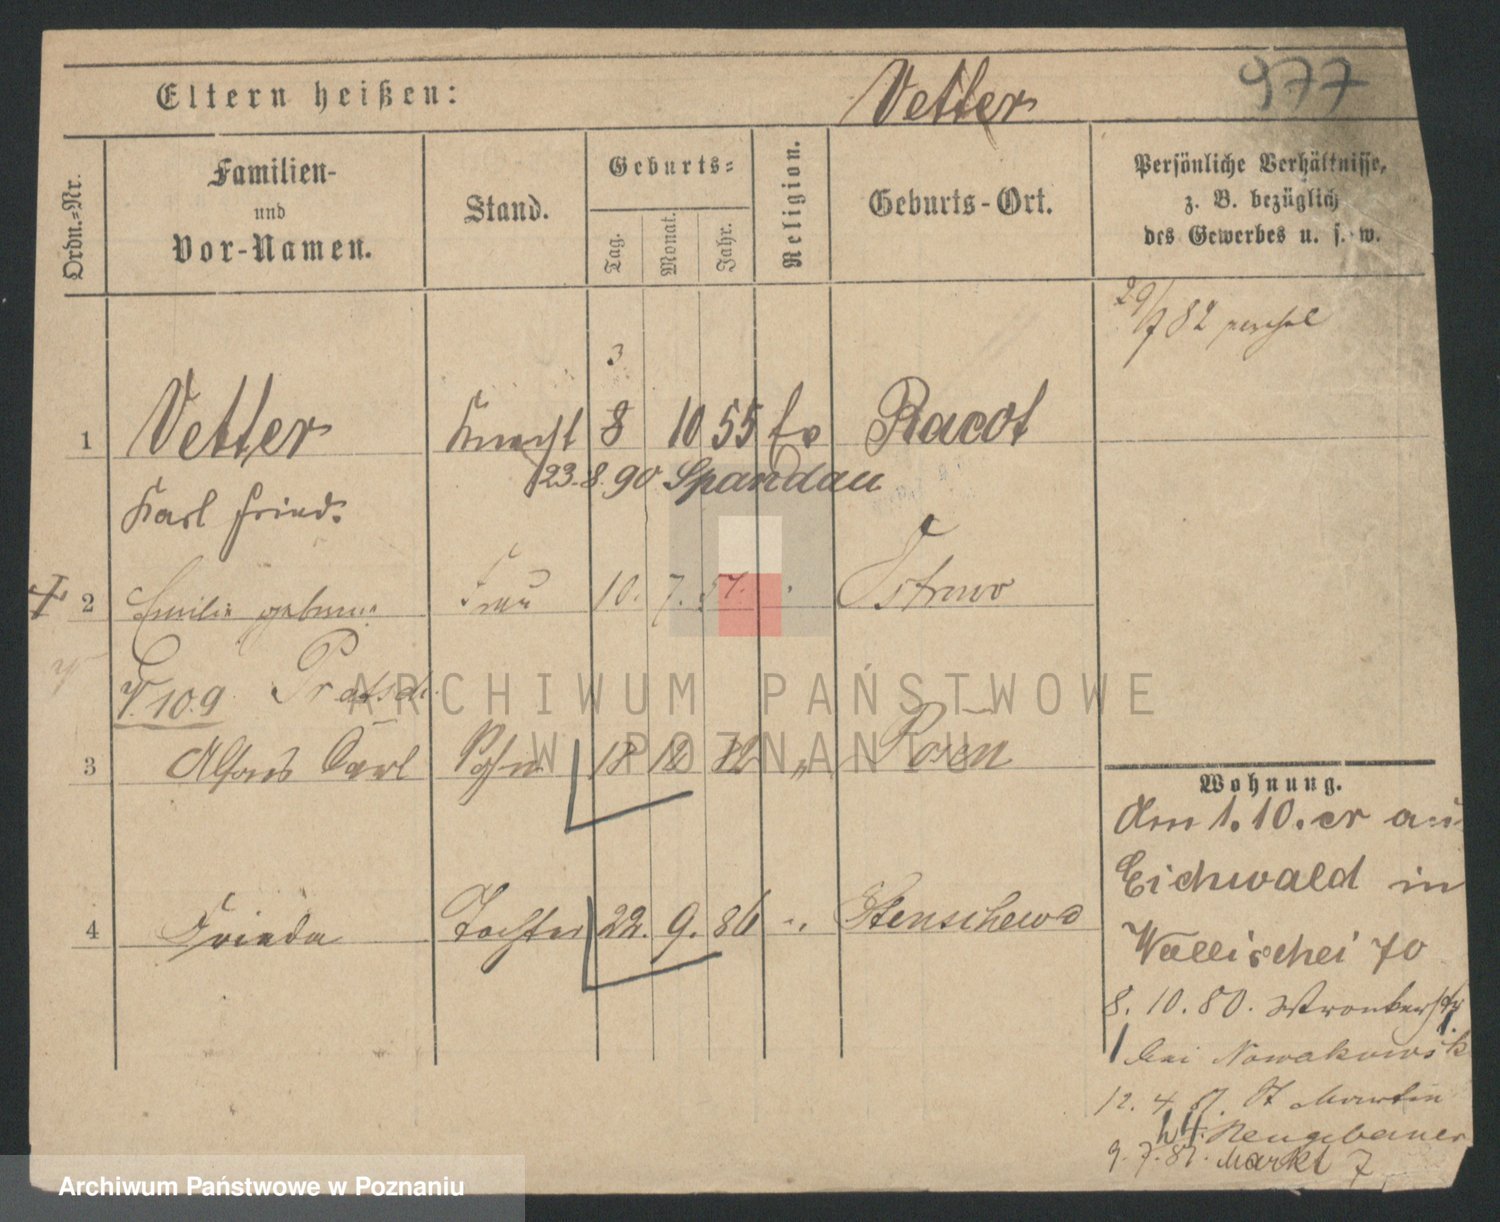 977
Eltern heißen: Vetter
Ordn.=Nr.
Familien-
und
Vor-Namen.
Stand.
Geburts=
Tag. Monat. Jahr.
Religion.
Geburts-Ort.
Persönliche Verhältnisse,
z. B. bezüglich
des Gewerbes u. s. w.
29/7 82
3
1 Vetter Knecht 8 10 55 Ev Racot
23.8.90 Spandau
Karl Fried.
2 Emilie geborne Frau 10. 7. 57. Ostrowo
V. 109
3 Alfred Carl Sohn 18 12 82 " Posen
4 Frieda Tochter 22. 9. 86 Stenschewo
Wohnung.
Am 1.10. er aus
Eichwald in
Wallischei 70
8. 10. 80.
bei Nowakowsk
12. 4. 87. St Martin
44. Neugebauer
9. 7. 87. Markt 7
ARCHIWUM PAŃSTWOWE
W POZNANIU
Archiwum Państwowe w Poznaniu